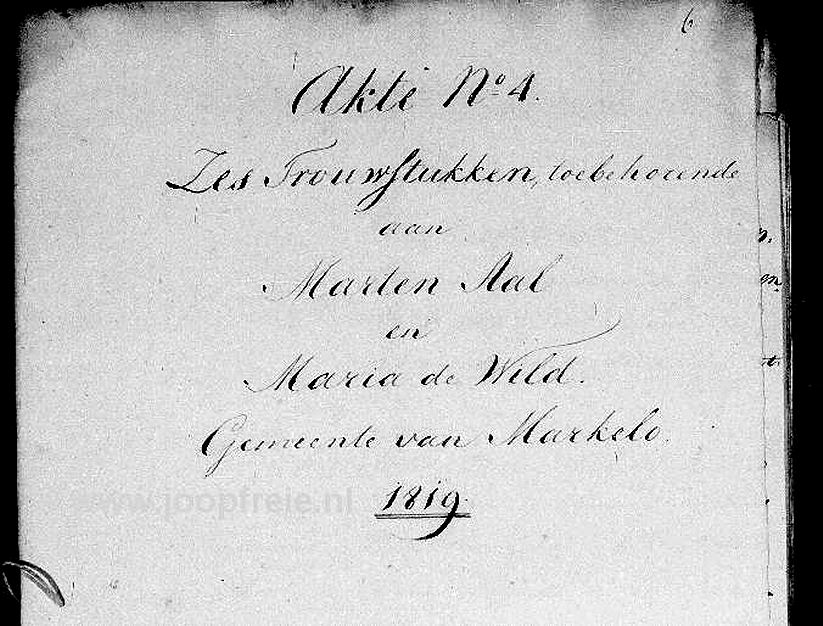 6
Akte No 4.
Zes Trouwstukken, toebehoorende
aan
Marten Aal
en
Maria de Wild.
Gemeente van Markelo.
1819.
www.joopfreie.nl